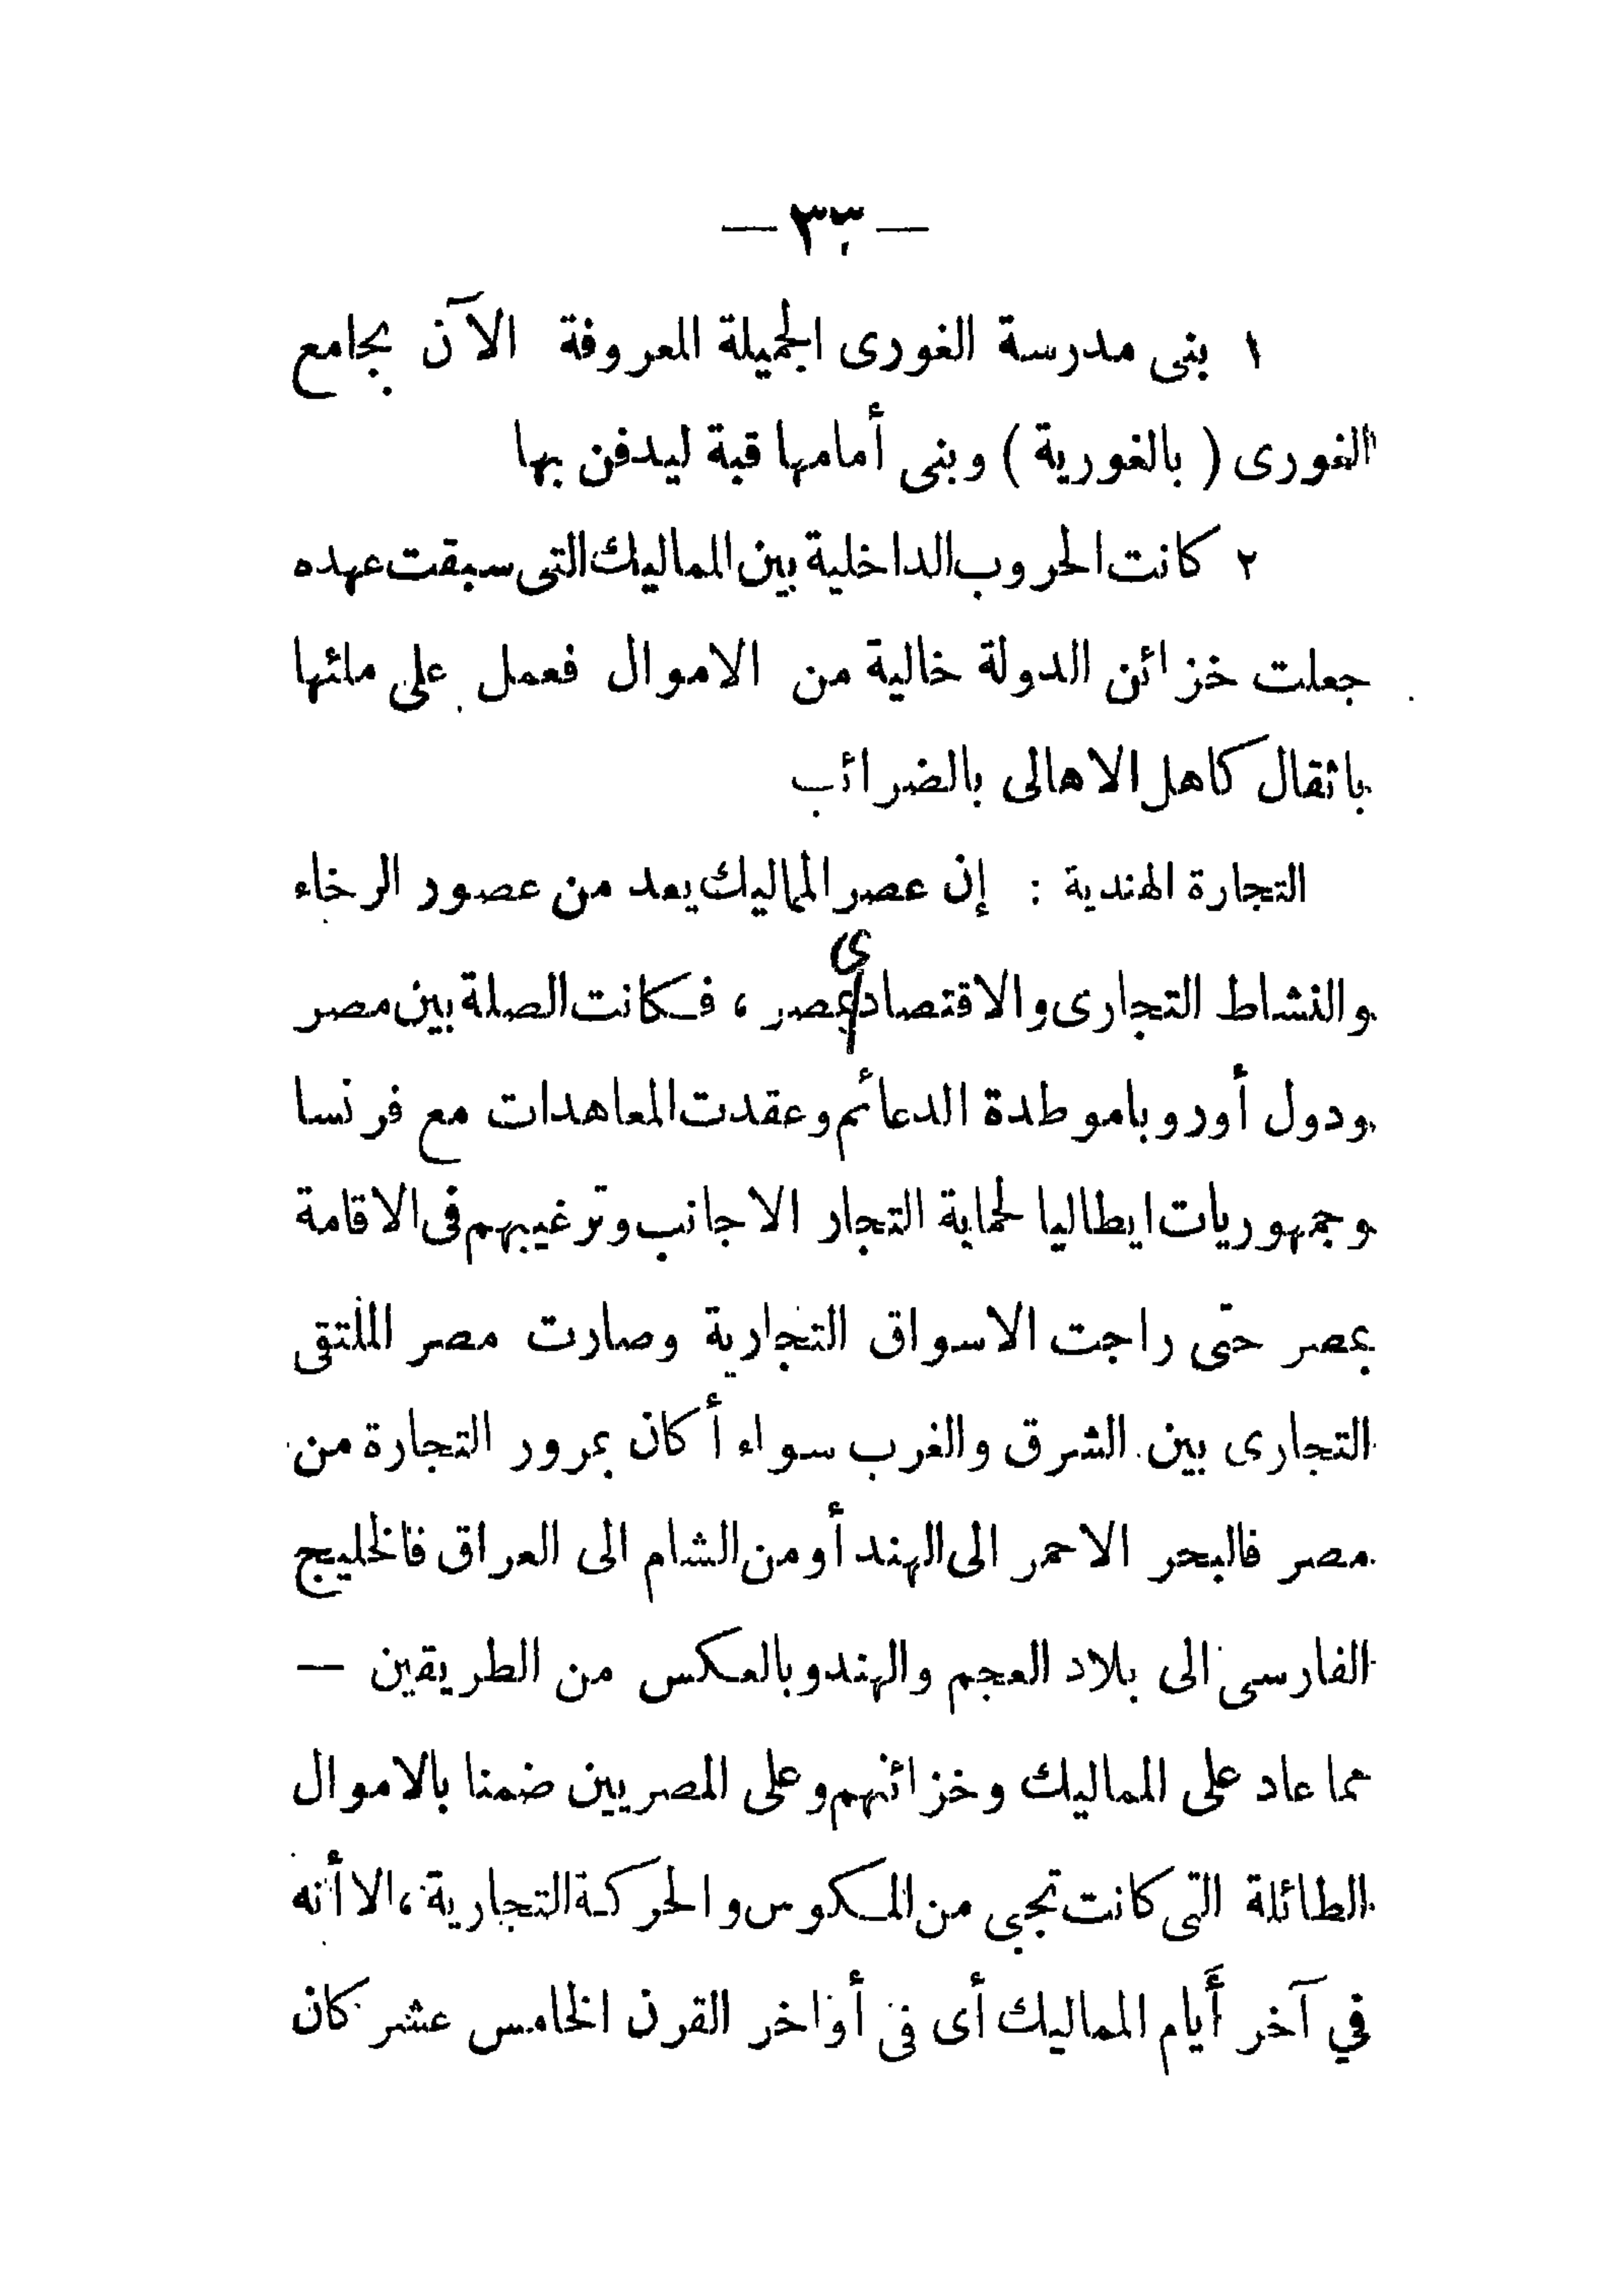 — ٣٣ —
١ بنى مدرسة الغورى الجميلة المعروفة الآن بجامع
الغورى ( بالغورية ) وبنى أمامها قبة ليدفن بها
٢ كانت الحروب الداخلية بين المماليك التى سبقت عهده
جعلت خزائن الدولة خالية من الاموال فعمل على ملئها
باثقال كاهل الاهالى بالضرائب
التجارة الهندية : إن عصر المماليك يعد من عصور الرخاء
والنشاط التجارى والاقتصادى بمصر ، فكانت الصلة بين مصر
ودول أوروبا موطدة الدعائم وعقدت المعاهدات مع فرنسا
وجمهوريات ايطاليا لحماية التجار الاجانب وترغيبهم فى الاقامة
بمصر حتى راجت الاسواق التجارية وصارت مصر الملتقى
التجارى بين الشرق والغرب سواء أكان بمرور التجارة من
مصر فالبحر الاحمر الى الهند أو من الشام الى العراق فالخليج
الفارسى الى بلاد العجم والهند وبالعكس من الطريقين —
مما عاد على المماليك وخزائنهم وعلى المصريين ضمنا بالاموال
الطائلة التى كانت تجبى من المكوس والحركة التجارية ، الا أنه
في آخر أيام المماليك أى فى أواخر القرن الخامس عشر كان